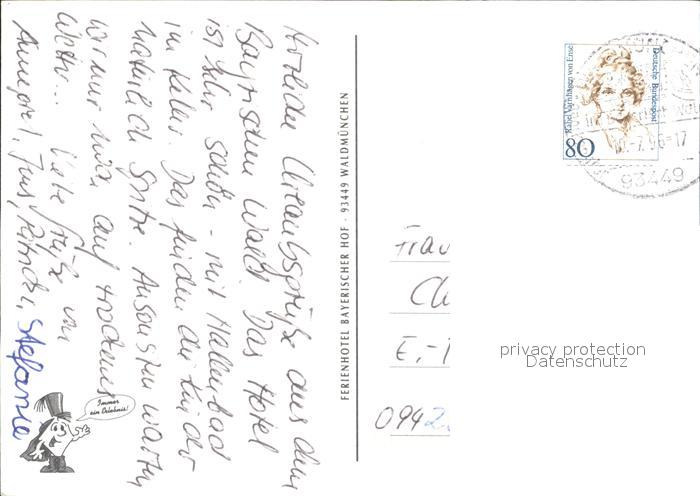 Herzliche Urlaubsgrüße aus dem
Bayrischen Wald! Das Hotel
ist sehr schön - mit Hallenbad
im Keller. Das finden die Kinder
natürlich Spitze. Ansonsten warten
wir nur noch auf trockenes
Wetter... Liebe Grüße von
Annegret, Jens,
Stefanie
Immer
ein Erlebnis!
FERIENHOTEL BAYERISCHER HOF · 93449 WALDMÜNCHEN
Deutsche Bundespost
Rahel Varnhagen von Ense
80
-17
93449
Frau
E.-
0942
privacy protection
Datenschutz